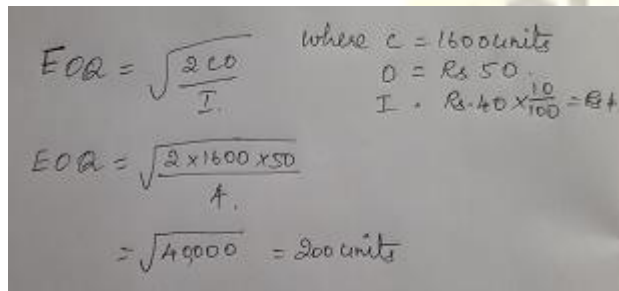 EOQ = √(2CO/I.) where C = 1600 units
O = Rs 50.
I. Rs. 40 × 10/100 = Rs 4
EOQ = √(2 × 1600 × 50/4.)
= √40,000 = 200 units